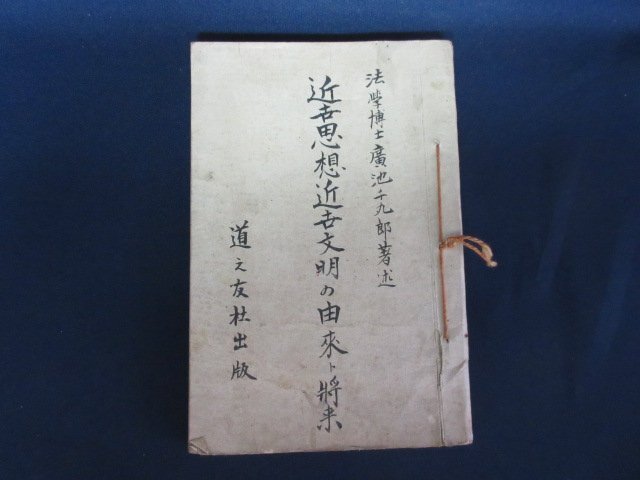 法學博士廣池千九郎著述
近世思想近世文明の由來ト將来
道之友社出版